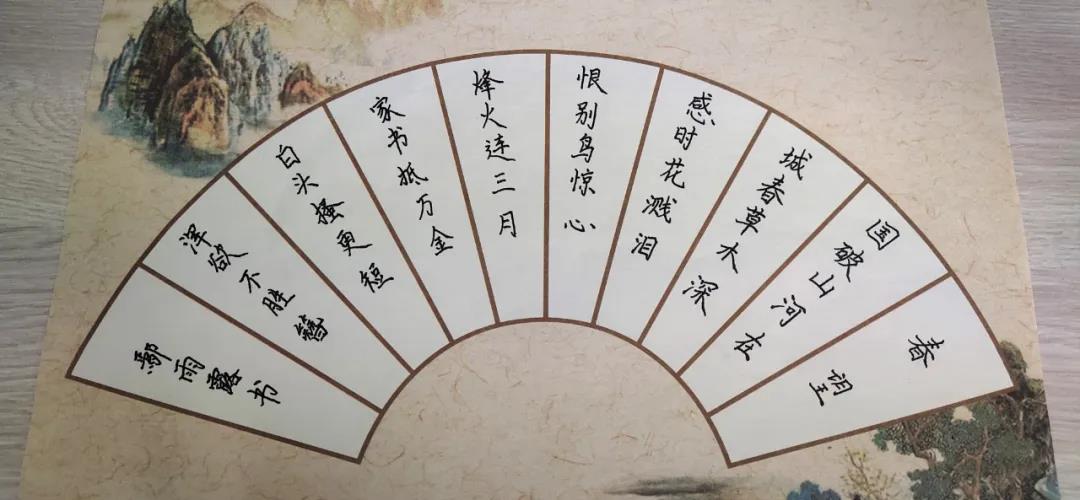 春望
国破山河在
城春草木深
感时花溅泪
恨别鸟惊心
烽火连三月
家书抵万金
白头搔更短
浑欲不胜簪
鄢雨露书